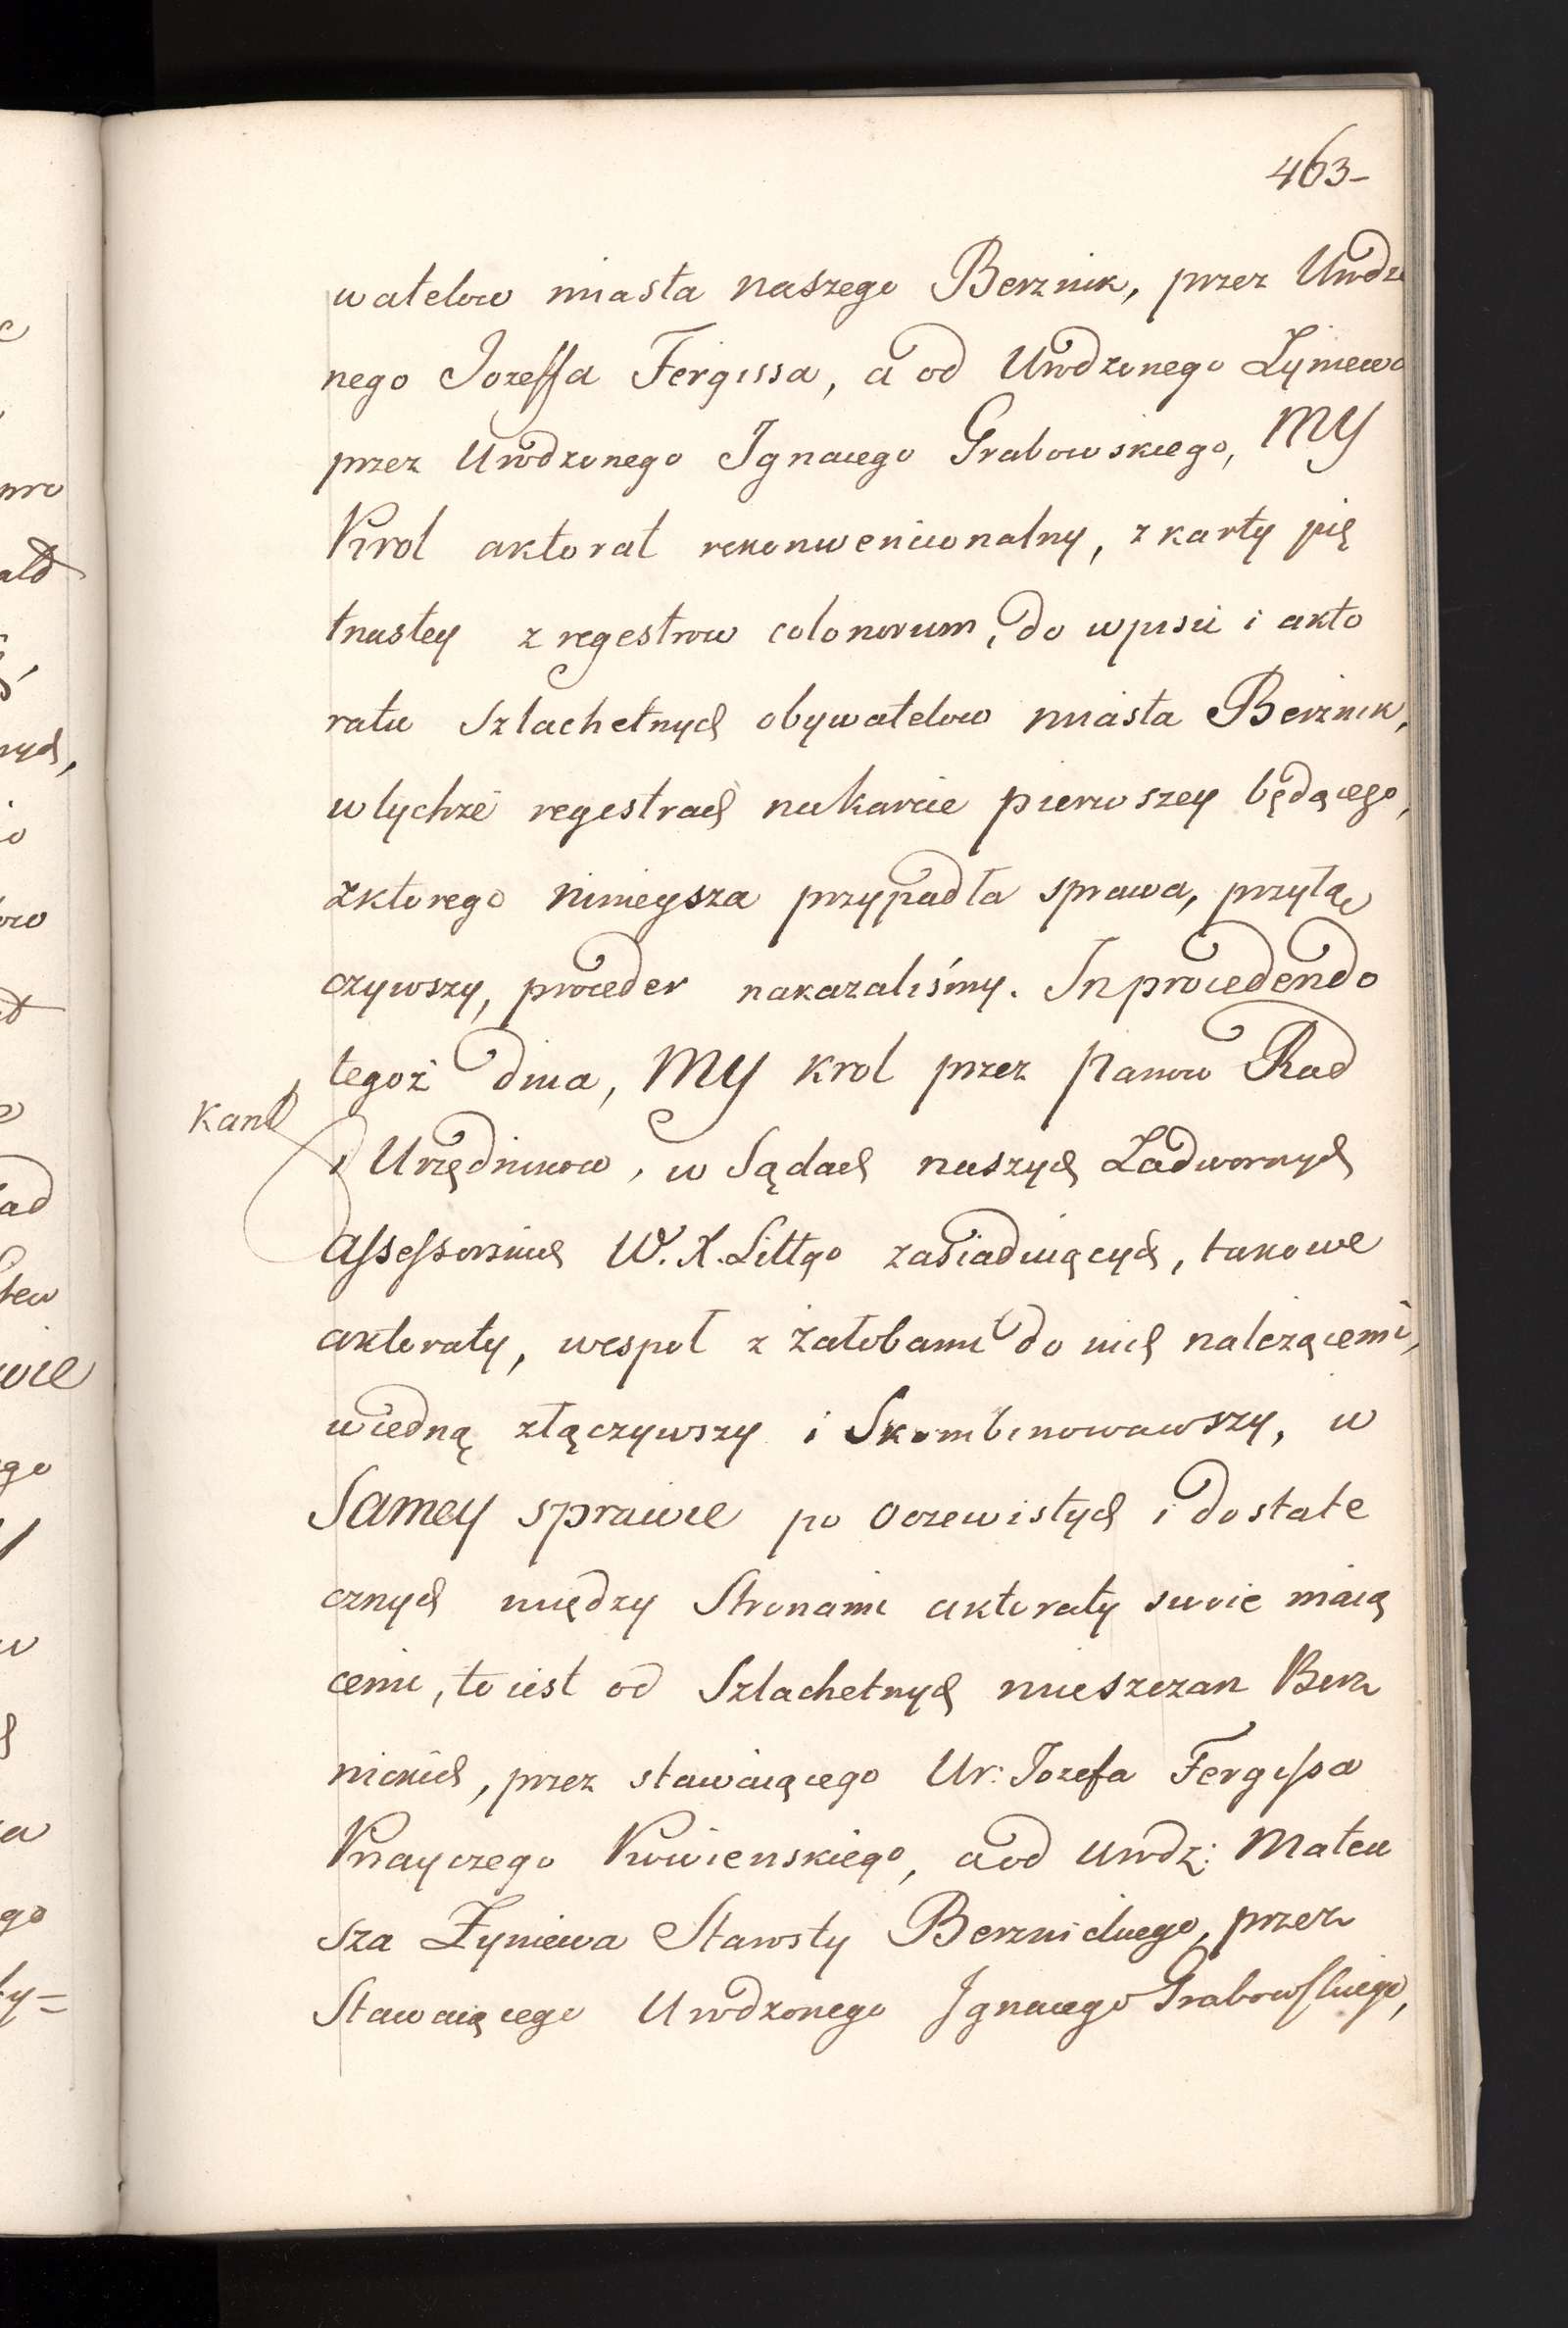 463-
watelow miasta naszego Berznik, przez Urodzo
nego Jozeffa Fergissa, a od Urodzonego Żyniewa
przez Urodzonego Ignacego Grabowskiego, MY
Krol aktorat rekonwencionalny, z karty pię
tnastey z regestrow colonorum, do wpisu i akto
ratu Szlachetnych obywatelow miasta Berznik,
w tychże regestrach na karcie pierwszey będącego,
z ktorego ninieysza przypadła sprawa, przyłą
czywszy, proceder nakazaliśmy. In procedendo
tegoż dnia, MY Krol przez Panow Rad
Kanl
i Urzędnikow, w Sądach naszych Zadwornych
Assessorskich W. X. Littgo zasiadaiących, takowe
aktoraty, wespoł z żałobami do nich należącemi,
w iedną złączywszy i Skombinowawszy, w
Samey sprawie po oczewistych i dostate
cznych między Stronami aktoraty swoie maią
cemi, to iest od Szlachetnych mieszczan Berz
nickich, przez stawaiącego Ur: Jozefa Fergissa
Krayczego Kowienskiego, a od Urodz: Mateu
sza Żyniewa Starosty Berznickiego, przez
Stawaiącego Urodzonego Ignacego Grabowskiego,